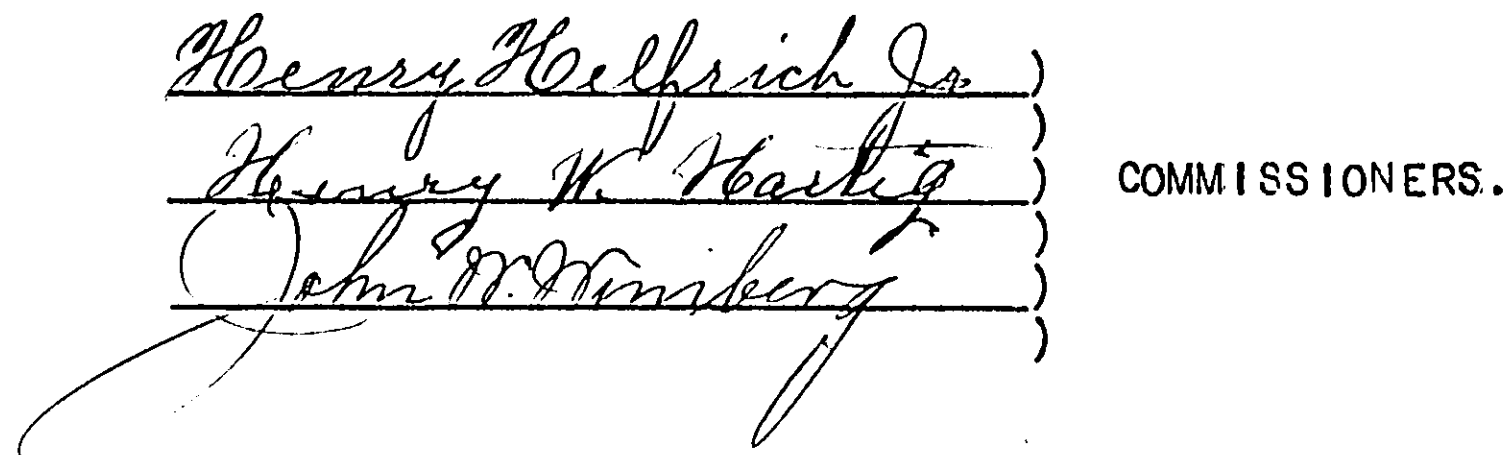 Henry Helfrich Jr )
)
Henry W. Hartig ) COMMISSIONERS.
)
John W. )
)